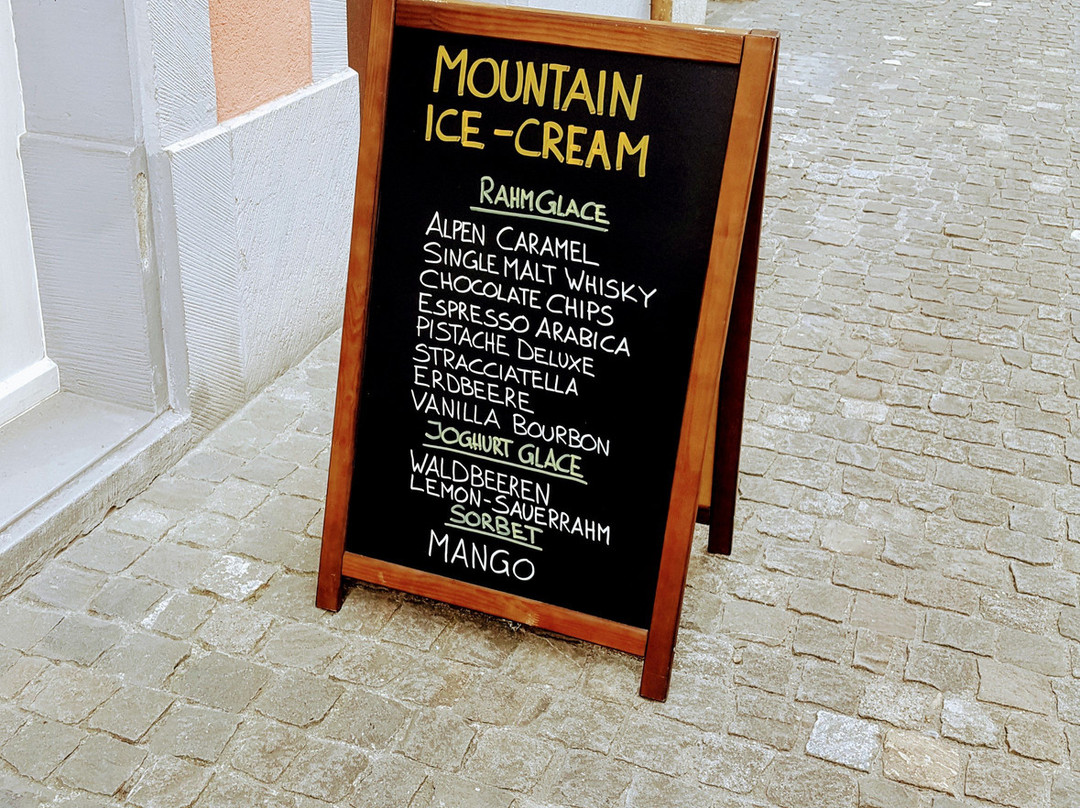 MOUNTAIN
ICE-CREAM
RAHMGLACE
ALPEN CARAMEL
SINGLE MALT WHISKY
CHOCOLATE CHIPS
ESPRESSO ARABICA
PISTACHE DELUXE
STRACCIATELLA
ERDBEERE
VANILLA BOURBON
JOGHURT GLACE
WALDBEEREN
LEMON-SAUERRAHM
SORBET
MANGO